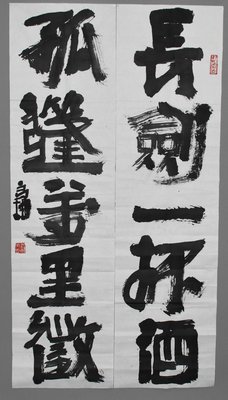 長劍一杯酒
孤蓬萬里徵